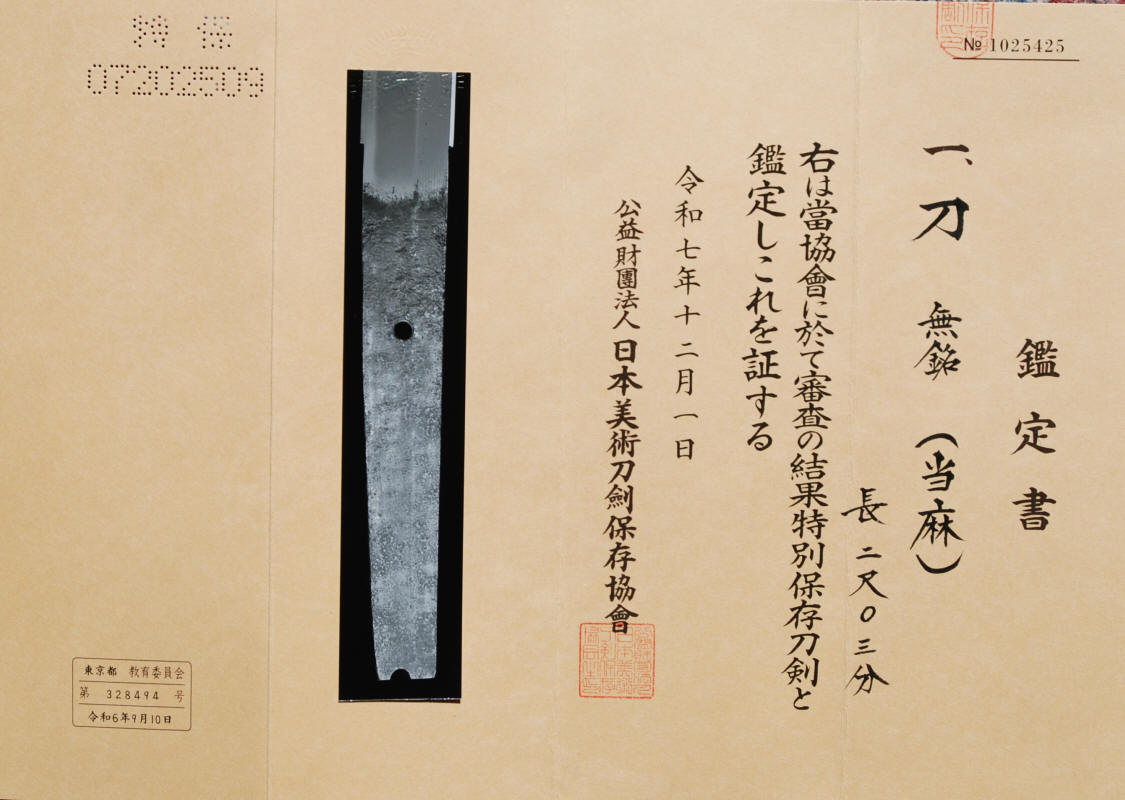 № 1025425
鑑定書
一、刀 無銘 (当麻)
長二尺〇三分
右は當協會に於て審査の結果特別保存刀剣と
鑑定しこれを証する
令和七年十二月一日
公益財團法人 日本美術刀劍保存協會
特保
07202509
東京都 教育委員会
第 328494 号
令和6年9月10日